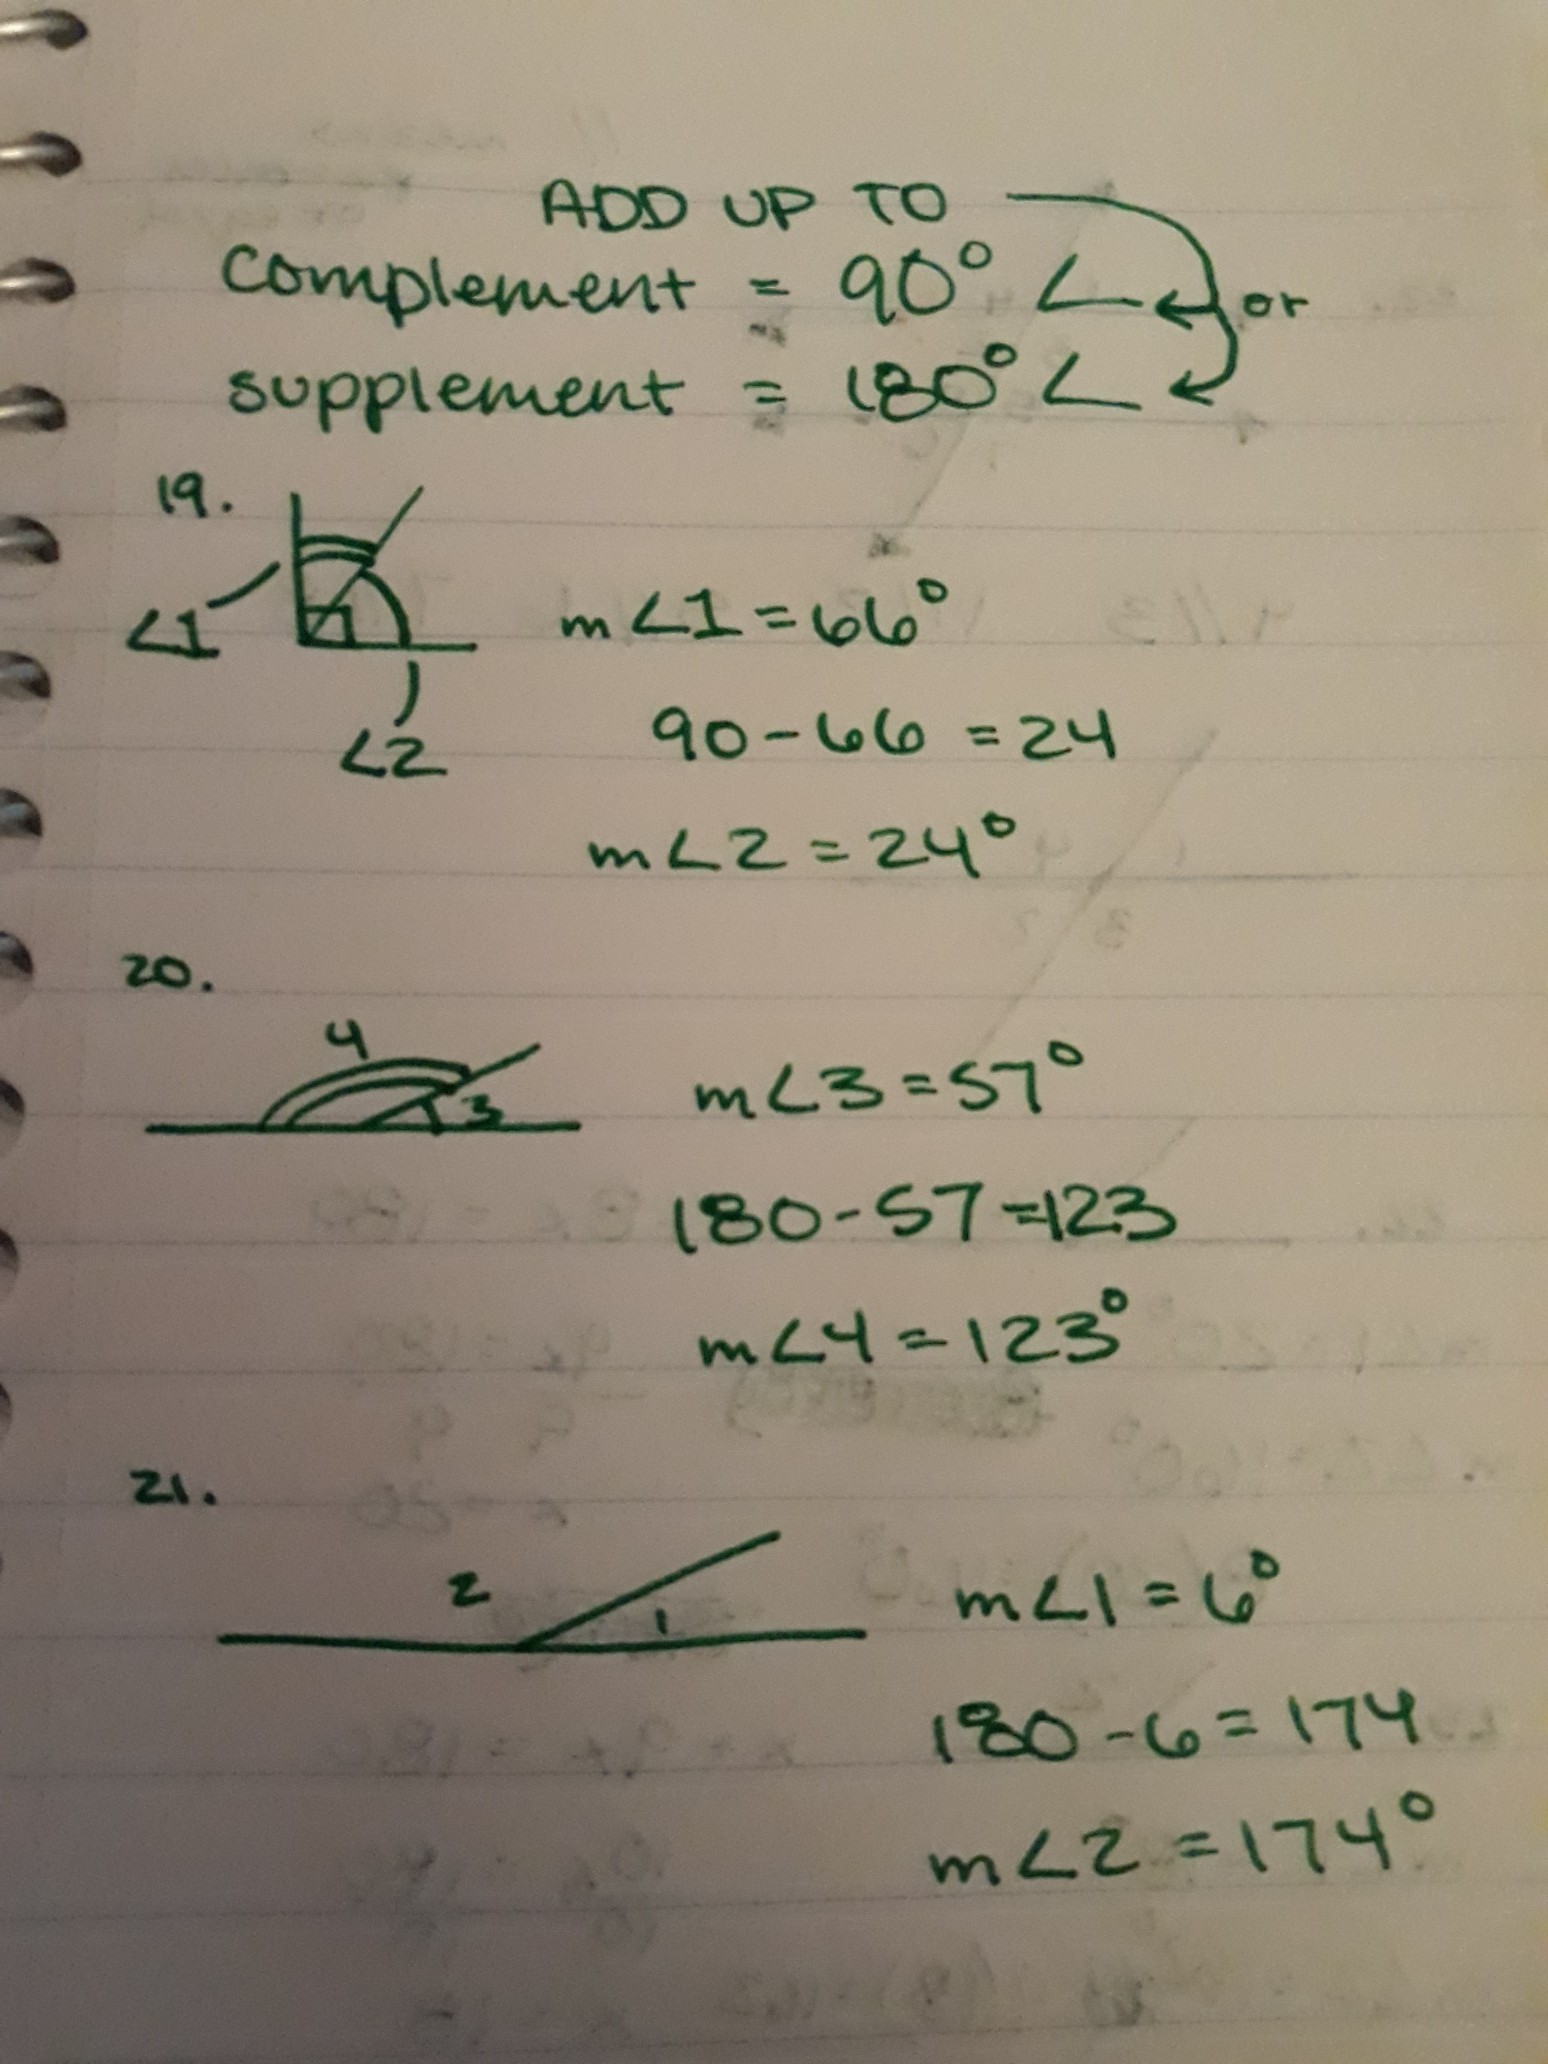 ADD UP TO
complement = 90° ∠ or
supplement = 180° ∠
19.
∠1
m∠1 = 66°
∠2
90 - 66 = 24
m∠2 = 24°
20.
4
3
m∠3 = 57°
180 - 57 = 123
m∠4 = 123°
21.
2
1
m∠1 = 6°
180 - 6 = 174
m∠2 = 174°